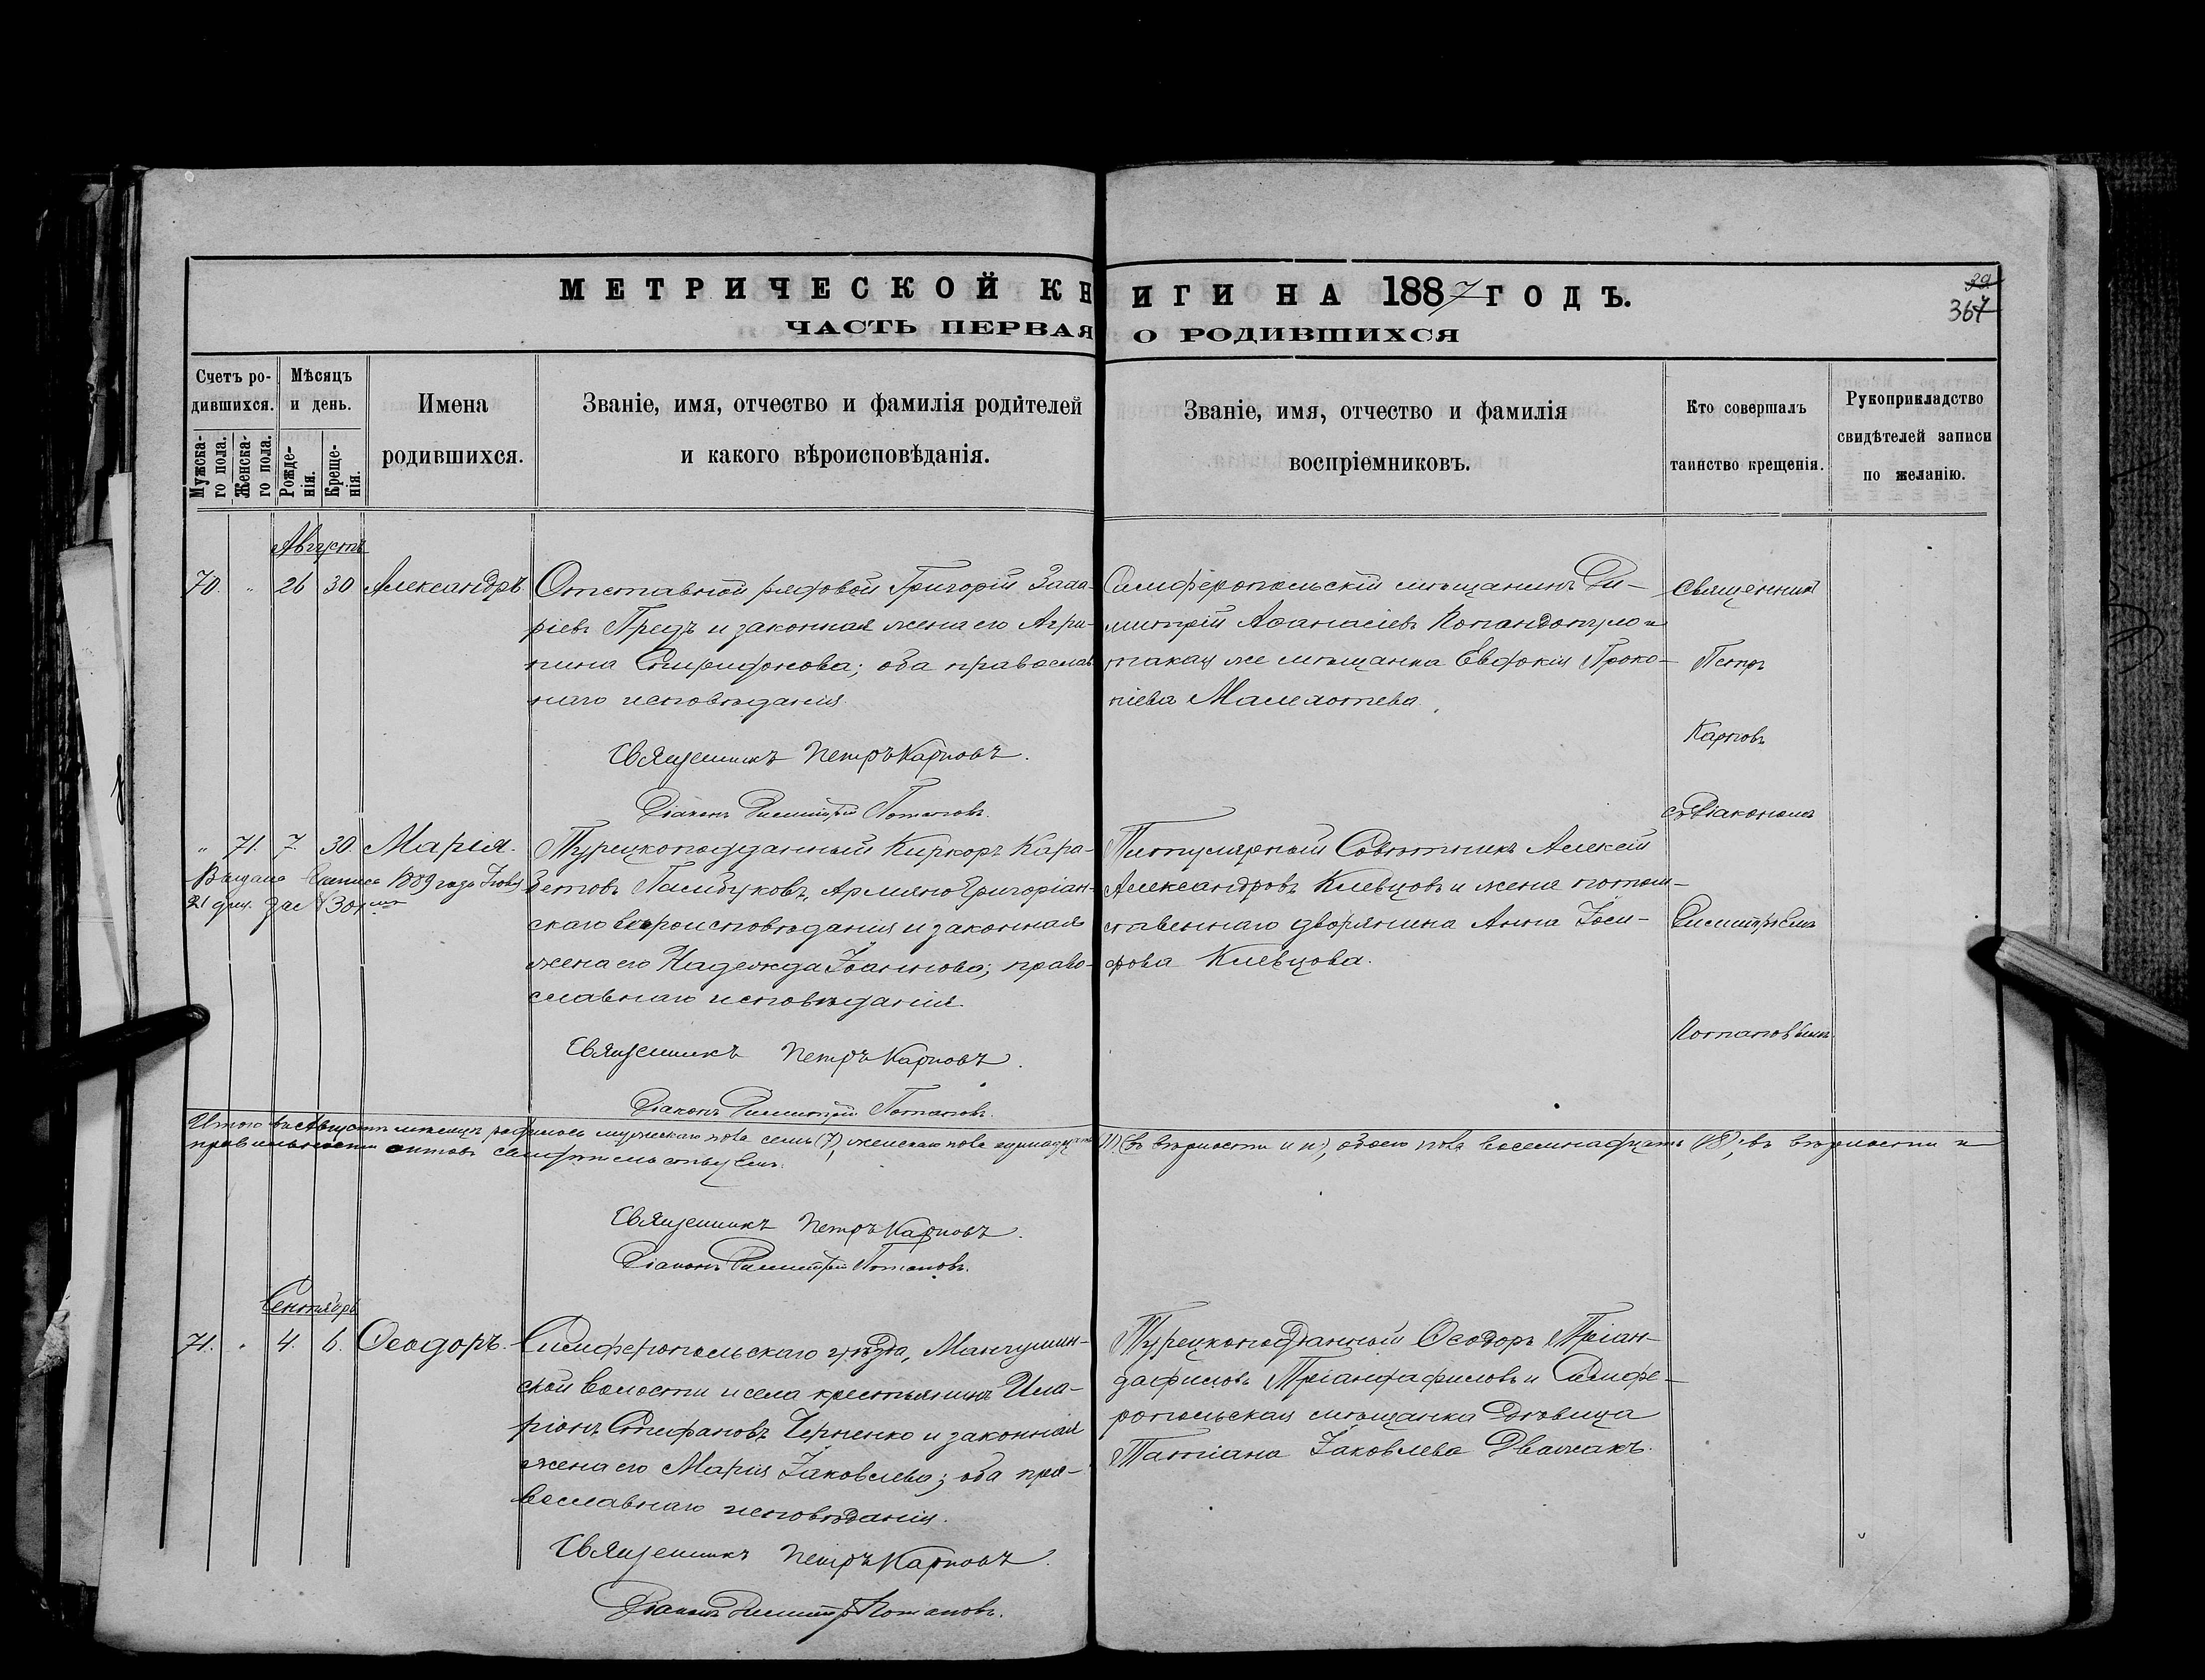 МЕТРИЧЕСКОЙ КНИГИ НА 1887 ГОДЪ.
ЧАСТЬ ПЕРВАЯ О РОДИВШИХСЯ
39
367
Счетъ ро-
дившихся.
Мужска-
го пола.
Женска-
го пола.
Мѣсяцъ
и день.
Рожде-
нія.
Креще-
нія.
Имена
родившихся.
Званіе, имя, отчество и фамилія родителей
и какого вѣроисповѣданія.
Званіе, имя, отчество и фамилія
воспріемниковъ.
Кто совершалъ
таинство крещенія.
Рукоприкладство
свидѣтелей записи
по желанію.
Августъ
70. " 26 30 Александръ
Отставной рядовой Григорій Заха-
ріевъ Предъ и законная жена его Агри-
пина Спиридонова; оба православ-
наго исповѣданія.
Священникъ Петръ Карповъ.
Діаконъ Димитрій Потаповъ.
Симферопольскій мѣщанинъ Ди-
митрій Аѳанасіевъ Попандопуло и
такая же мѣщанка Евдокія Проко-
піева
Священникъ
Петръ
Карповъ
съ Діакономъ
" 71. 7. 30 Марія.
Выдана 1889 года
21 дня за № 301
Турецкоподданный Киркоръ Кара-
бетовъ Памбуковъ, Армяно Григоріан-
скаго вѣроисповѣданія и законная
жена его Надежда Іоаннова; право-
славнаго исповѣданія.
Священникъ Петръ Карповъ.
Діаконъ Димитрій Потаповъ.
Титулярный Совѣтникъ Алексѣй
Александровъ Клевцовъ и жена потом-
ственнаго дворянина Анна Іоси-
фова Клевцова.
Димитріемъ
Потаповымъ
Итого въ Августѣ мѣсяцѣ родилось мужескаго пола семь (7), женскаго пола одинадцать (11) (въ вѣрности и п), обоего пола восемнадцать (18); въ вѣрности и
правильности актовъ свидѣтельствуемъ.
Священникъ Петръ Карповъ.
Діаконъ Димитрій Потаповъ.
Сентябрь
71. " 4. 6. Ѳеодоръ.
Симферопольскаго уѣзда, Мангушин-
ской волости и села крестьянинъ Ила-
ріонъ Стефановъ Черненко и законная
жена его Марія Іаковлева; оба пра-
вославнаго исповѣданія.
Священникъ Петръ Карповъ.
Діаконъ Димитрій Потаповъ.
Турецкоподданный Ѳеодоръ Тріан-
дафиловъ Тріандафиловъ и Симфе-
ропольская мѣщанка Дѣвица
Татіана Іаковлева Дважакъ.